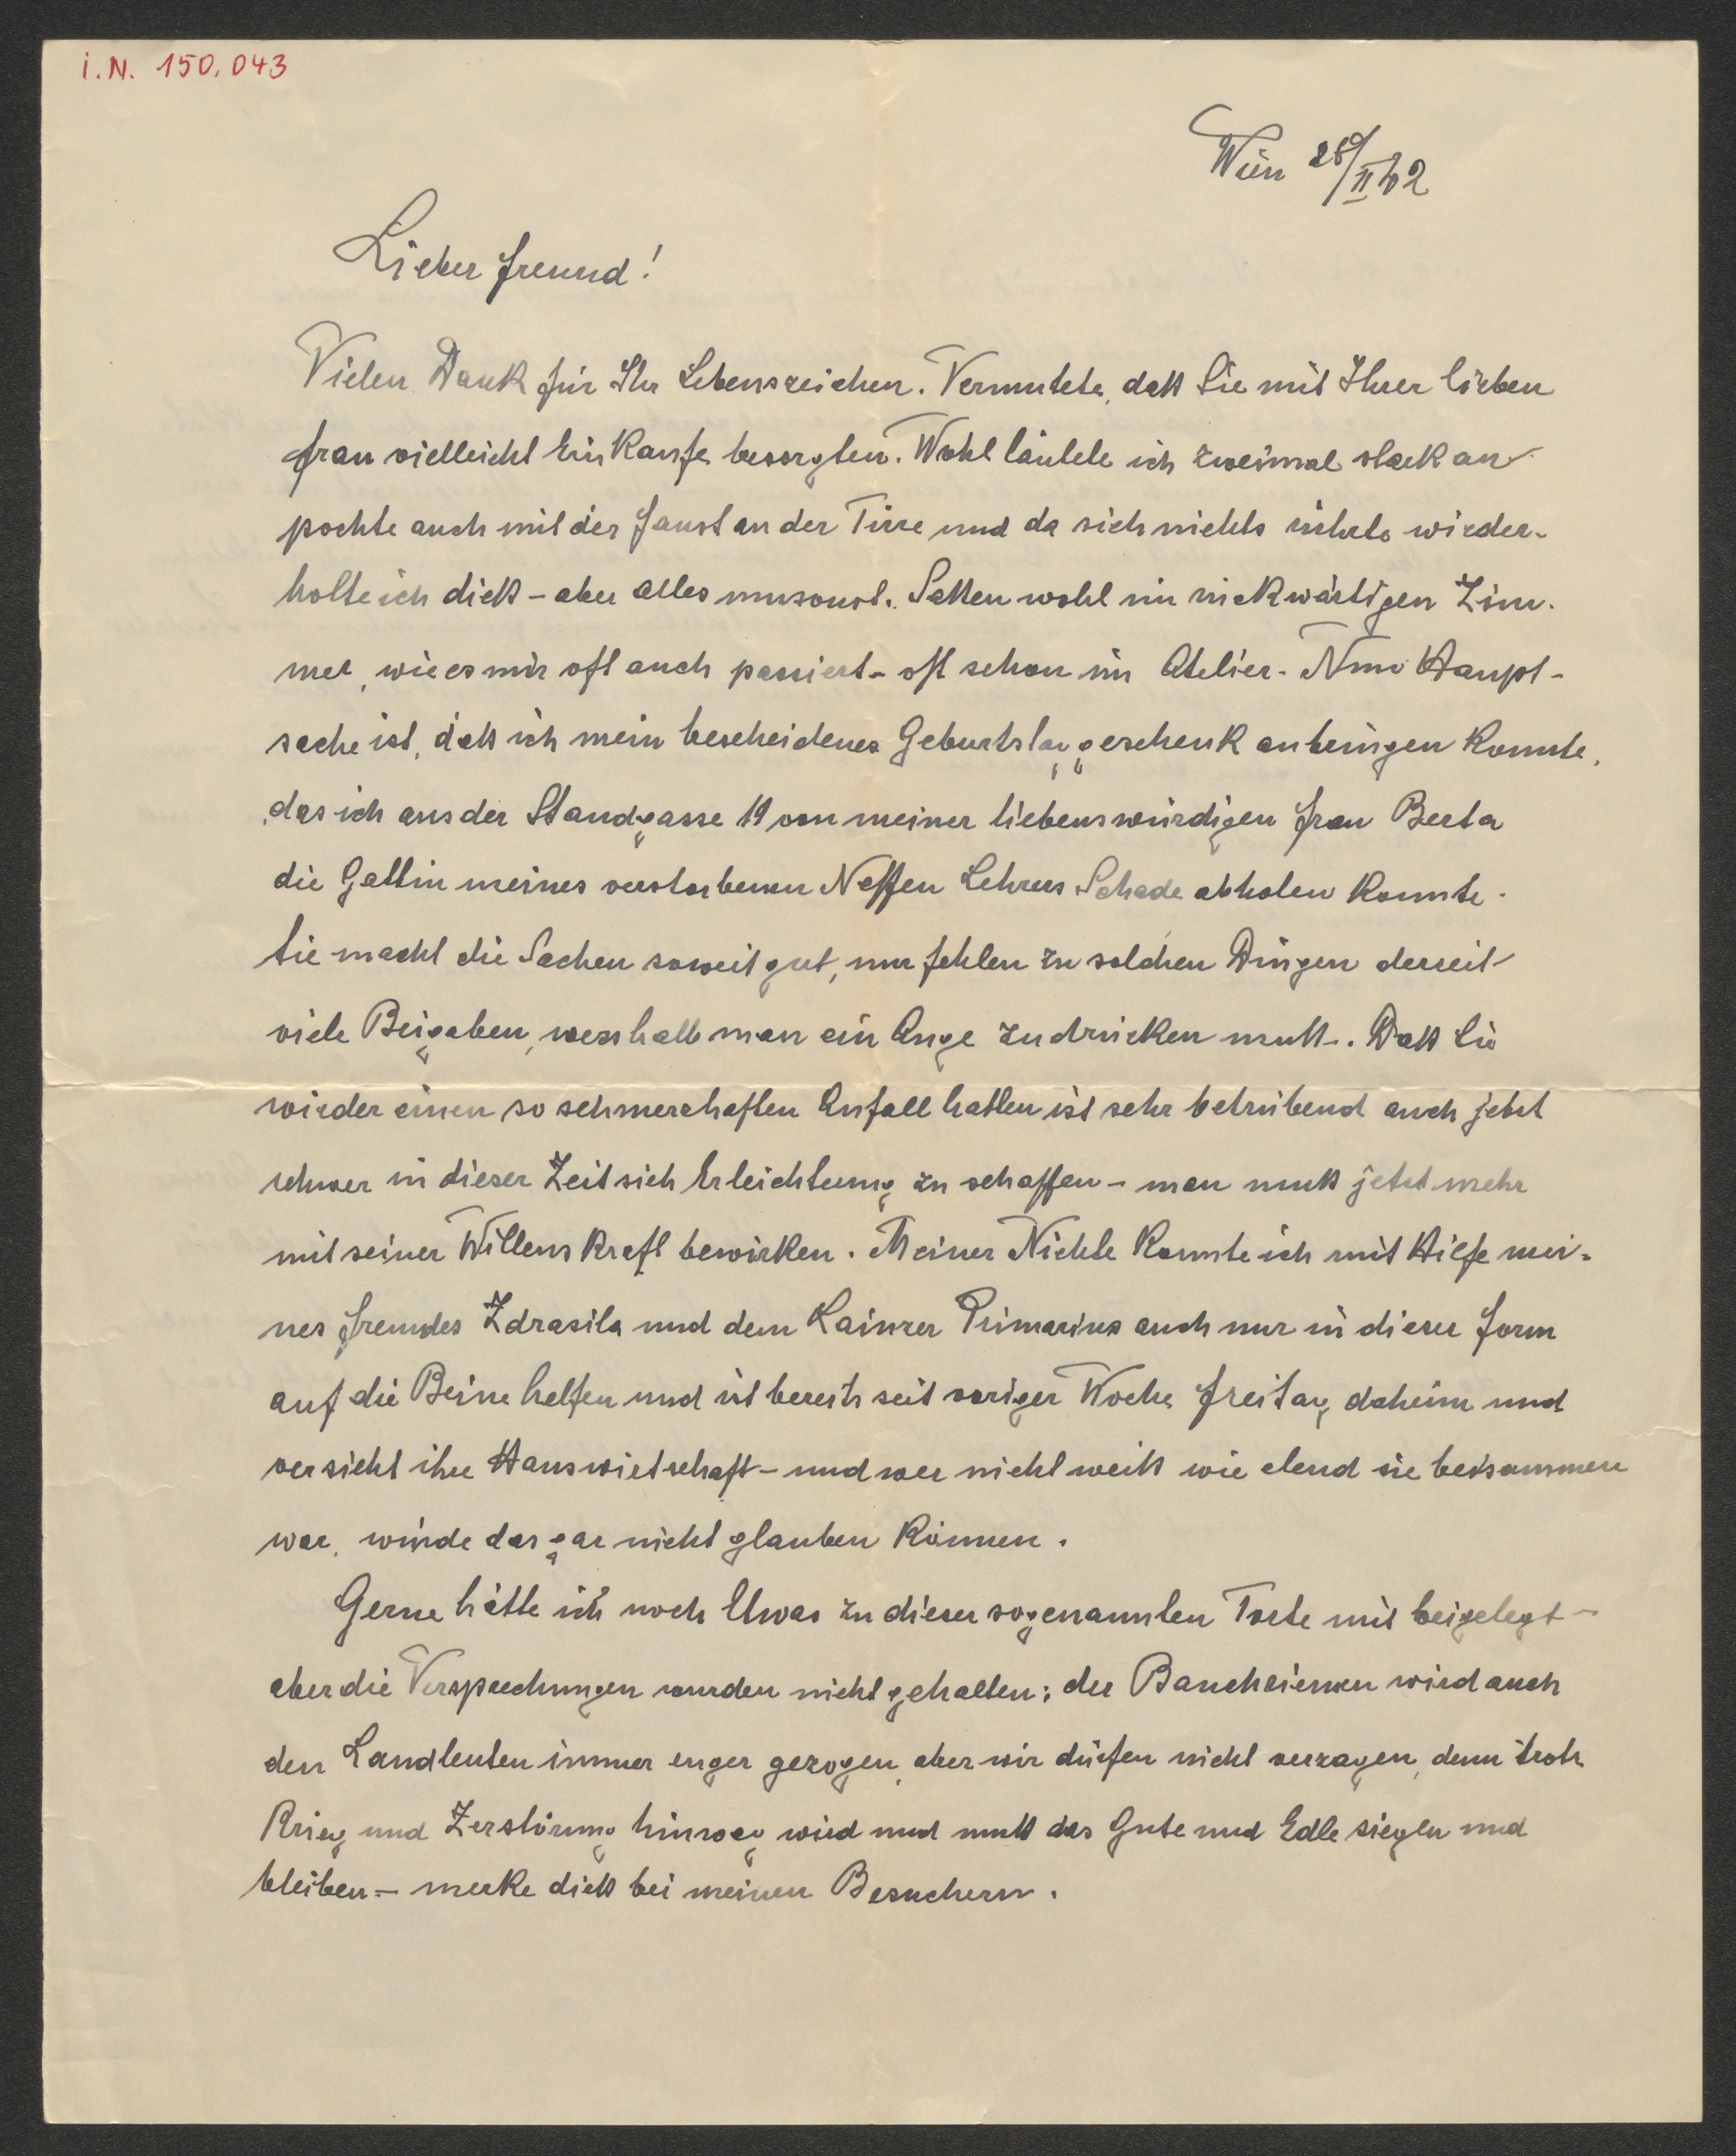 i.N. 150.043
Wien 28/II 42
Lieber Freund!
Vielen Dank für Ihr Lebenszeichen. Vermutete, daß Sie mit Ihrer lieben
Frau vielleicht Einkäufe besorgten. Wohl läutete ich zweimal stark an
pochte auch mit der Faust an der Türe und da sich nichts rührte wieder-
holte ich dieß – aber alles umsonst. Saßen wohl im rückwärtigen Zim-
mer, wie es mir oft auch passiert – oft schon im Atelier. Nun Haupt-
sache ist, daß ich mein bescheidenes Geburtstaggeschenk anbringen konnte,
das ich aus der Staudgasse 19 von meiner liebenswürdigen Frau Berta
die Gattin meines verstorbenen Neffen Lehrers Schade abholen konnte.
Sie macht die Sachen soweit gut, nur fehlen zu solchen Dingen derzeit
viele Beigaben, weshalb man ein Auge zudrücken muß. Daß Sie
wieder einen so schmerzhaften Anfall hatten ist sehr betrübend auch jetzt
schwer in dieser Zeit sich Erleichterung zu schaffen – man muß jetzt mehr
mit seiner Willenskraft bewirken. Meiner Nichte konnte ich mit Hilfe mei-
nes Freundes Zdrasila und dem Lainzer Primarius auch nur in dieser Form
auf die Beine helfen und ist bereits seit voriger Woche Freitag daheim und
versieht ihre Hauswirtschaft – und wer nicht weiß wie elend sie beisammen
war, würde das gar nicht glauben können.
Gerne hätte ich noch Etwas zu dieser sogenannten Torte mit beigelegt –
aber die Versprechungen wurden nicht gehalten; der Bauchriemen wird auch
den Landleuten immer enger gezogen, aber wir dürfen nicht verzagen, denn trotz
Krieg und Zerstörung hinweg wird und muß das Gute und Edle siegen und
bleiben – merke dieß bei meinen Besuchern.